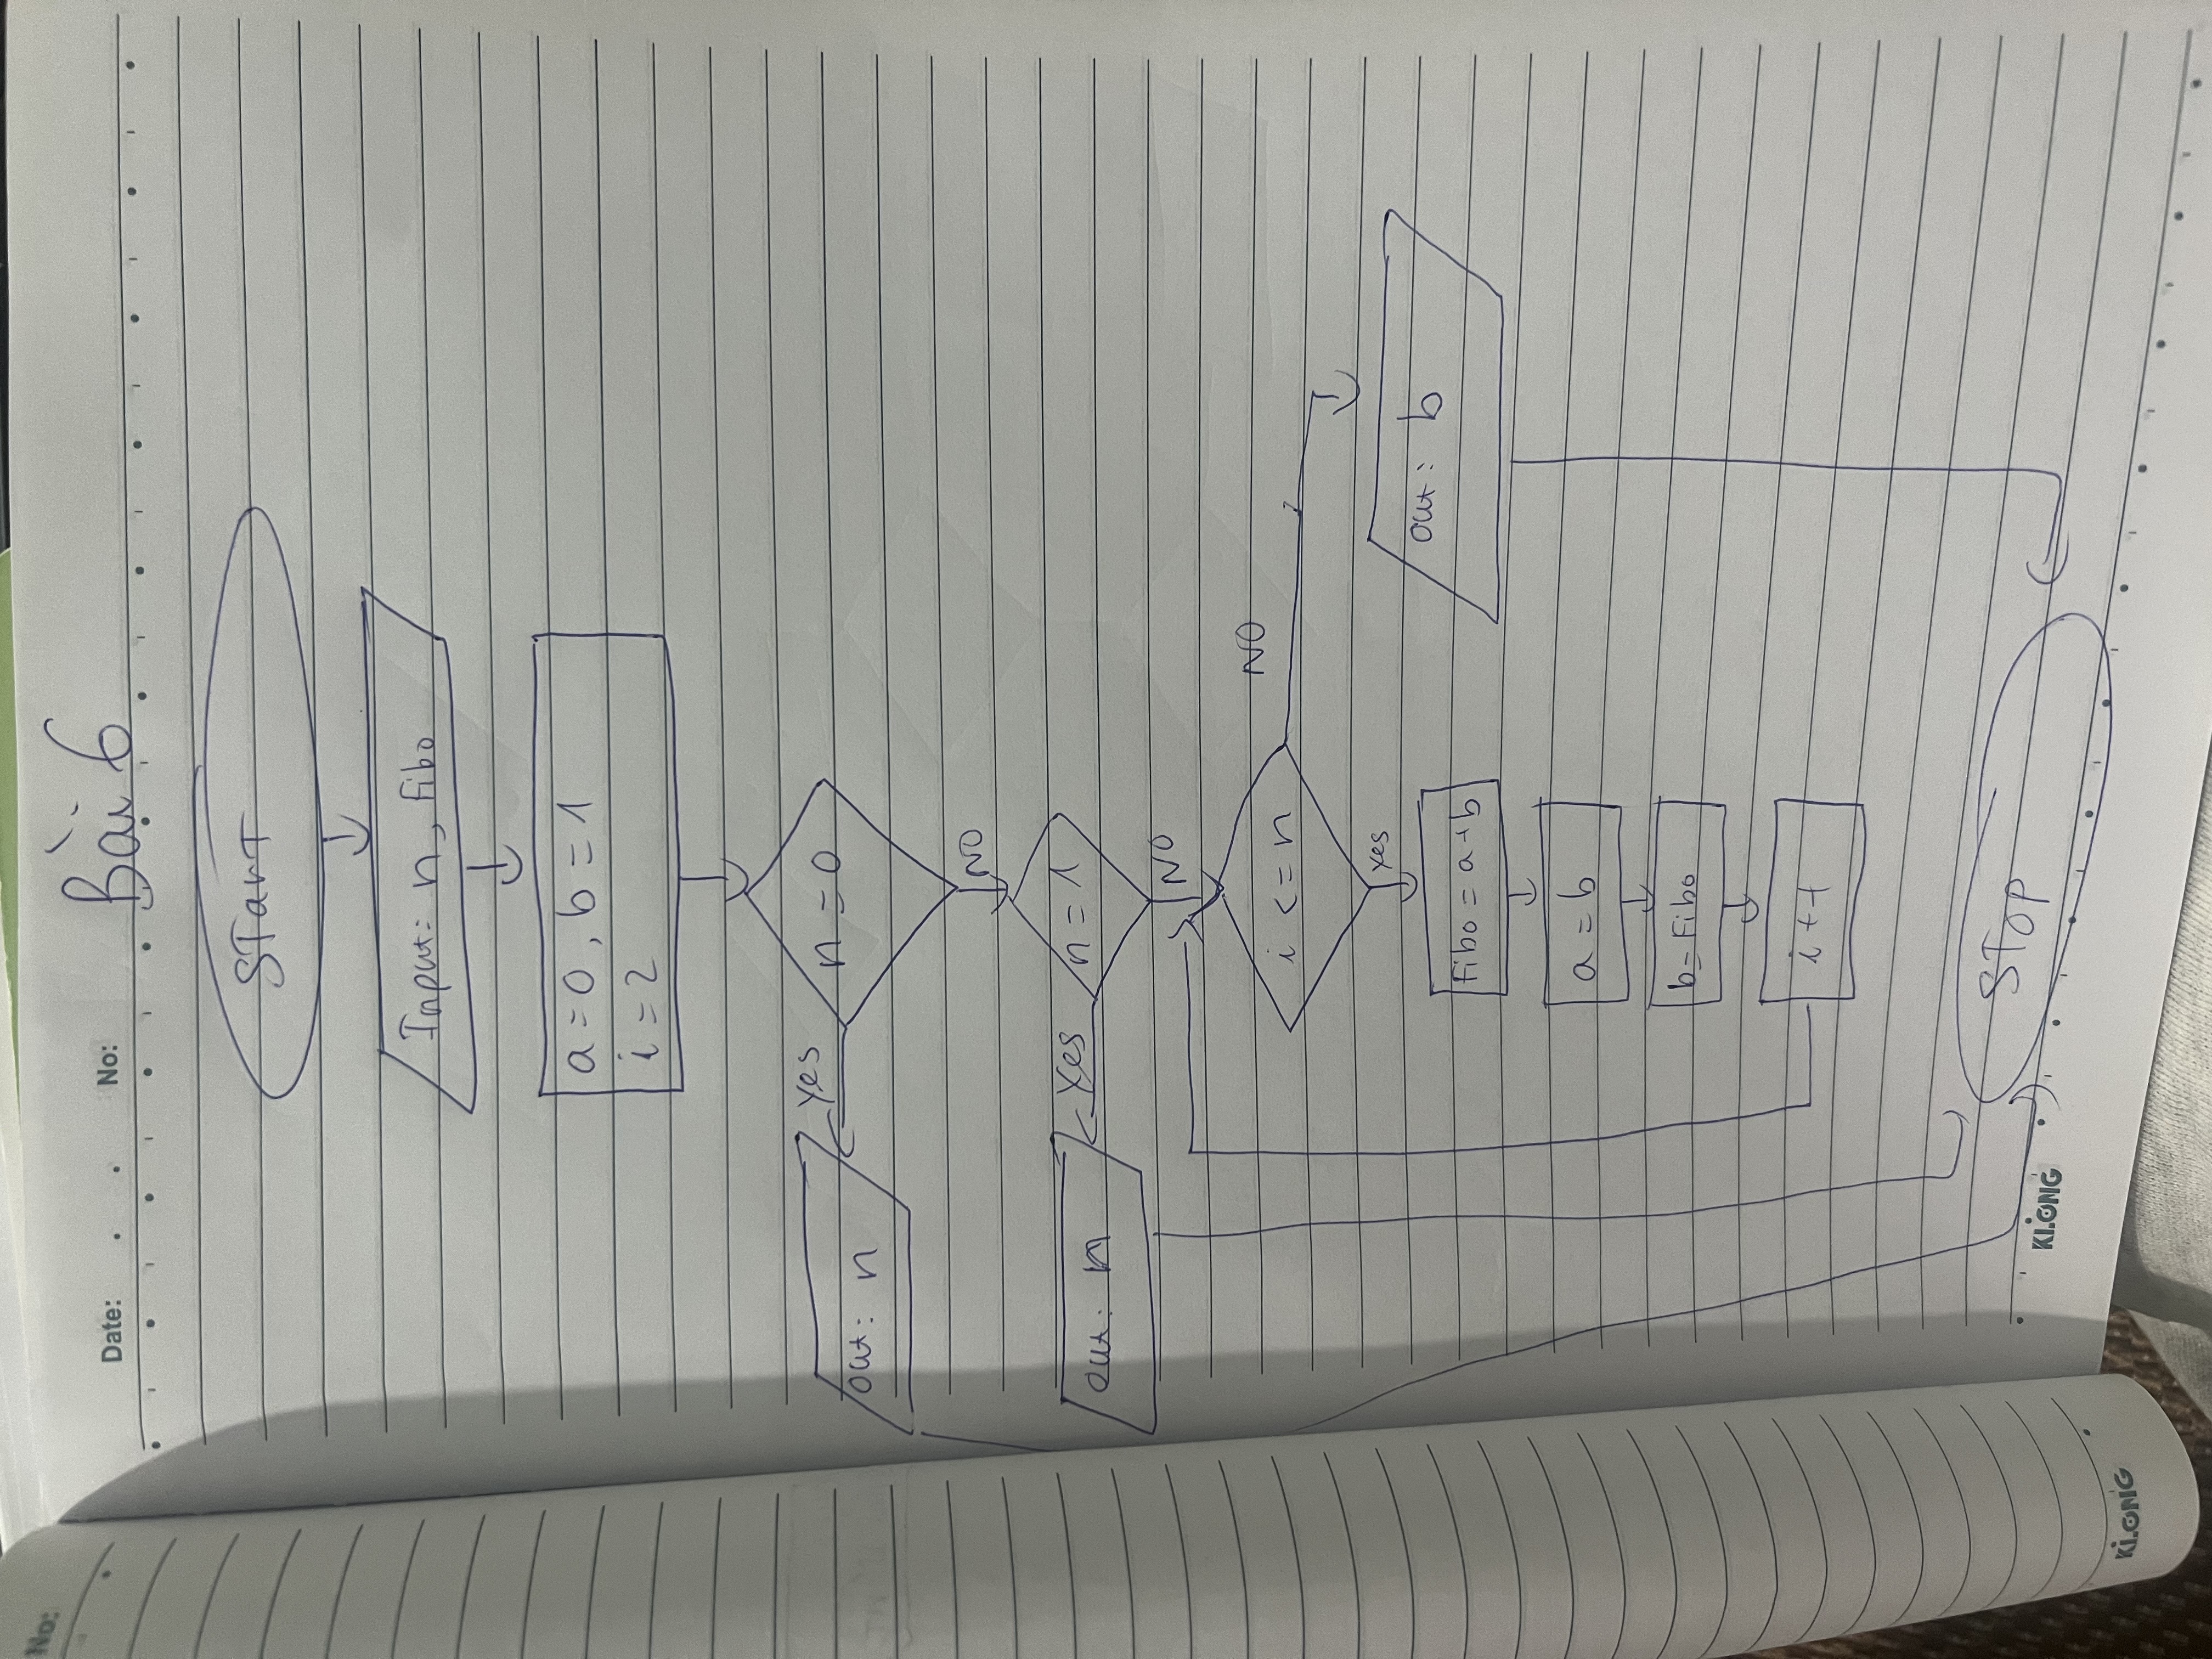 No:
Date: . . No: Bài 6
START
Input: n, Fibo
a = 0, b = 1
i = 2
n = 0
yes
out: n
NO
n = 1
Yes
out: n
NO
i <= n
NO
yes
out: b
Fibo = a + b
a = b
b = Fibo
i++
STOP
KLONG
KLONG